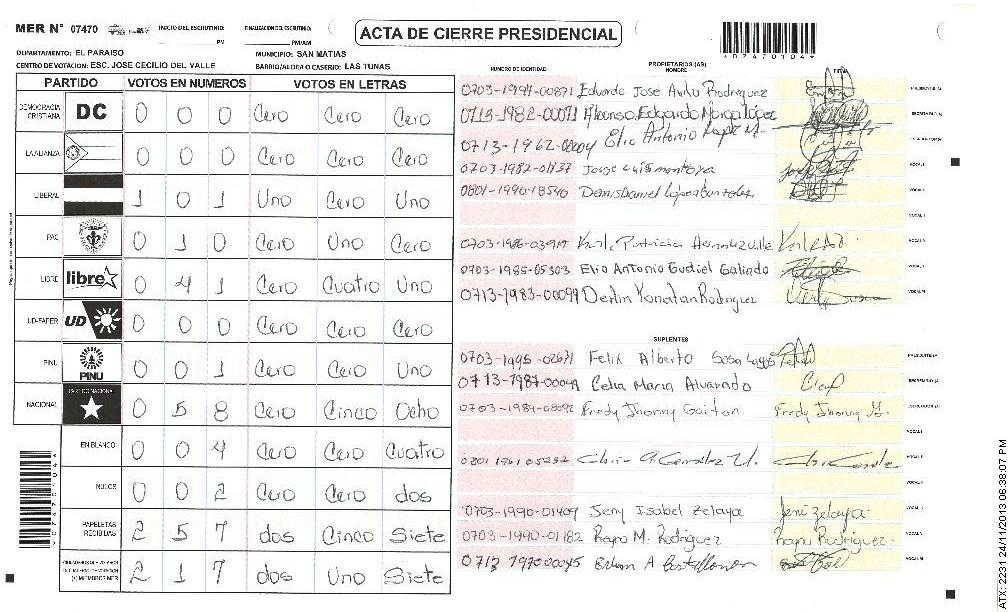 MER N° 07470 INICIO DEL ESCRUTINIO: PM FINALIZACION DEL ESCRUTINIO: PM/AM
ACTA DE CIERRE PRESIDENCIAL
DEPARTAMENTO: EL PARAISO MUNICIPIO: SAN MATIAS
CENTRO DE VOTACION: ESC. JOSE CECILIO DEL VALLE BARRIO/ALDEA O CASERIO: LAS TUNAS
PARTIDO VOTOS EN NUMEROS VOTOS EN LETRAS
DEMOCRACIA CRISTIANA DC 0 0 0 Cero Cero Cero
LA ALIANZA 0 0 0 Cero Cero Cero
LIBERAL 1 0 1 Uno Cero Uno
PAC 0 1 0 Cero Uno Cero
LIBRE libre 0 4 1 Cero Cuatro Uno
UD-FAPER UD 0 0 0 Cero Cero Cero
PINU PINU 0 0 1 Cero Cero Uno
NACIONAL PARTIDO NACIONAL 0 5 8 Cero Cinco Ocho
EN BLANCO 0 0 4 Cero Cero Cuatro
NULOS 0 0 2 Cero Cero dos
PAPELETAS RECIBIDAS 2 5 7 dos Cinco Siete
(+) MIEMBROS MER 2 1 7 dos Uno Siete
NUMERO DE IDENTIDAD PROPIETARIOS (AS) NOMBRE FIRMA
0703-1994-00871 Eduardo Jose Avila Rodriguez PRESIDENTE (A)
0713-1982-00071 Edgardo SECRETARIO (A)
0713-1962-00004 Elio Antonio Lopez M. ESCRUTADOR (A)
0703-1982-01137 Jorge Luis montoya VOCAL I
0801-1990-18540 Denis Daniel Lopez VOCAL II
Karla Patricia
0703-1985-05303 Elio Antonio Gudiel Galindo
0713-1983-00099 Derlin Yonatan Rodriguez
SUPLENTES
0703-1995-02671 Felix Alberto Sosa Lagos PRESIDENTE (A)
0713-1987-00049 Celia Maria Alvarado SECRETARIO (A)
0703-1984-03092 Fredy Jhonny Gaitan Fredy Jhonny G. ESCRUTADOR (A)
0801 1961 05232
0703-1990-01404 Jeny Isabel Zelaya Jeni Zelaya
0703-1990-01182 M. Rodriguez Rodriguez
0713 1970 00045
ATX: 2231 24/11/2013 06:38:07 PM